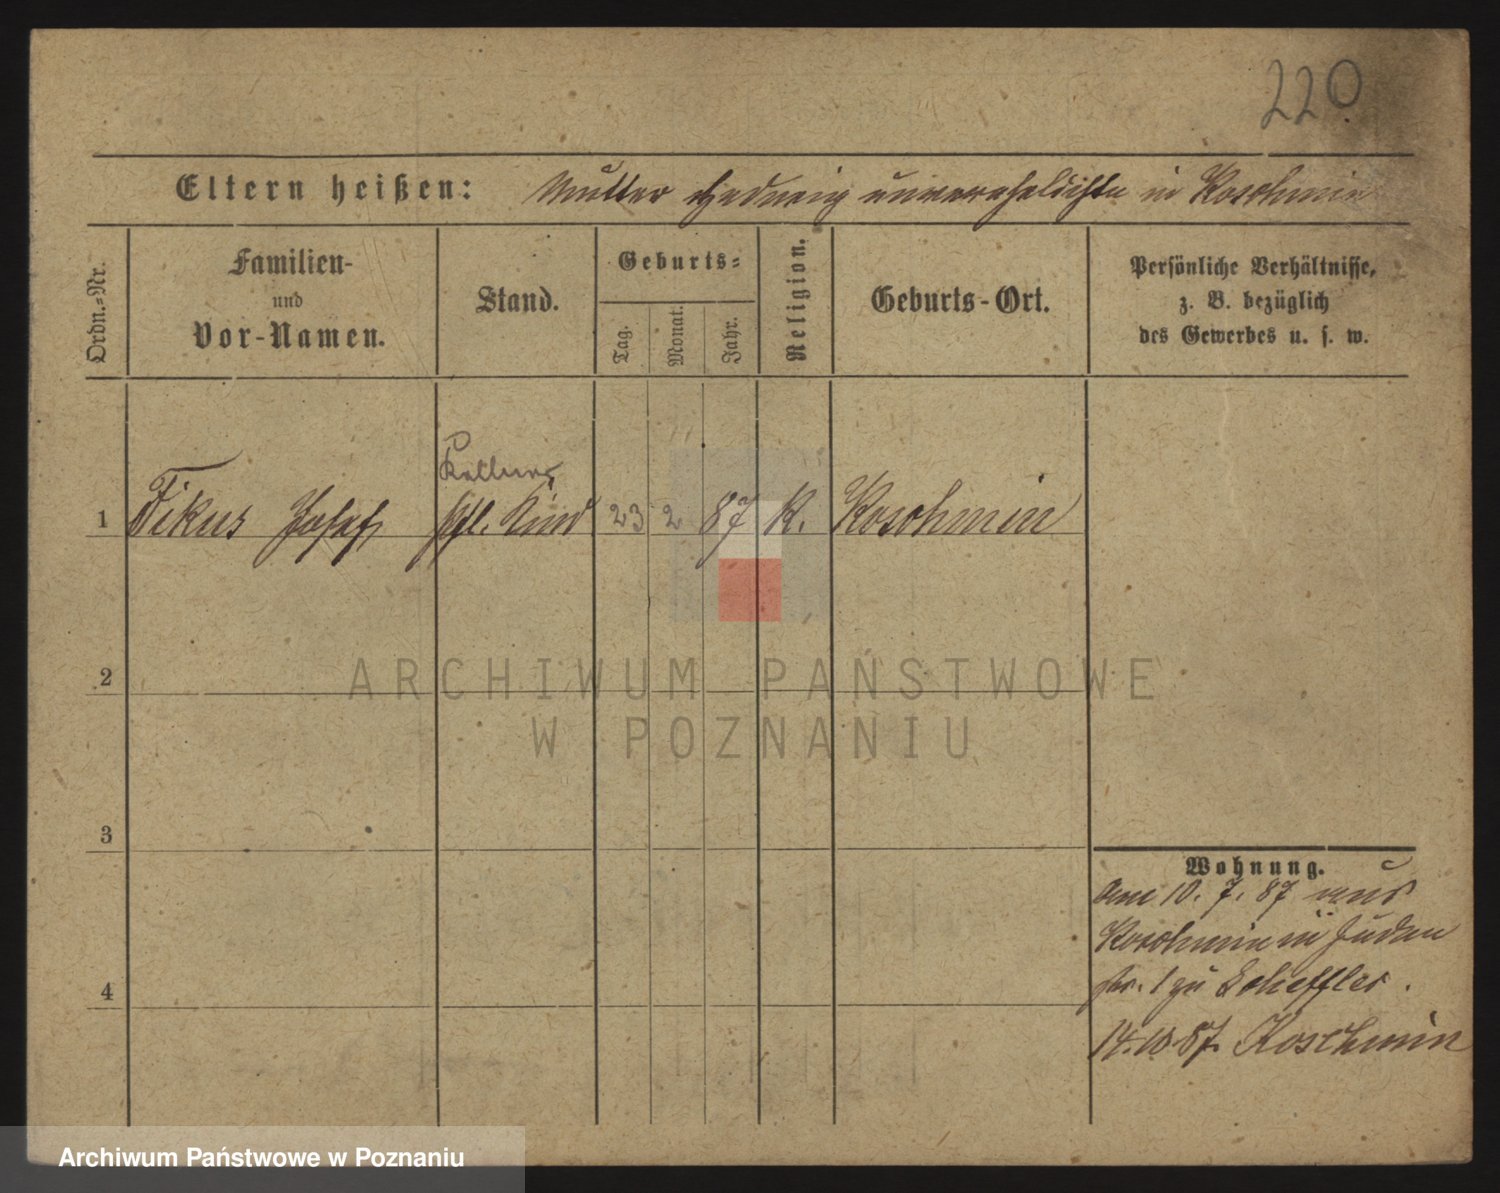 220
Eltern heißen: Mutter Hedwig unverehelichte in Koschmin
Ordn.=Nr.
Familien-
und
Vor-Namen.
Stand.
Geburts=
Tag.
Monat.
Jahr.
Religion.
Geburts-Ort.
Persönliche Verhältnisse,
z. B. bezüglich
des Gewerbes u. s. w.
Kellner
1 Fikus Josef Pfl. Kind 23 2 87 K. Koschmin
2
ARCHIWUM PAŃSTWOWE
W POZNANIU
3
4
Wohnung.
Am 10. 7. 87 aus
Koschmin in Juden
str. 1 zu Scheffler.
14.10.87. Koschmin
Archiwum Państwowe w Poznaniu